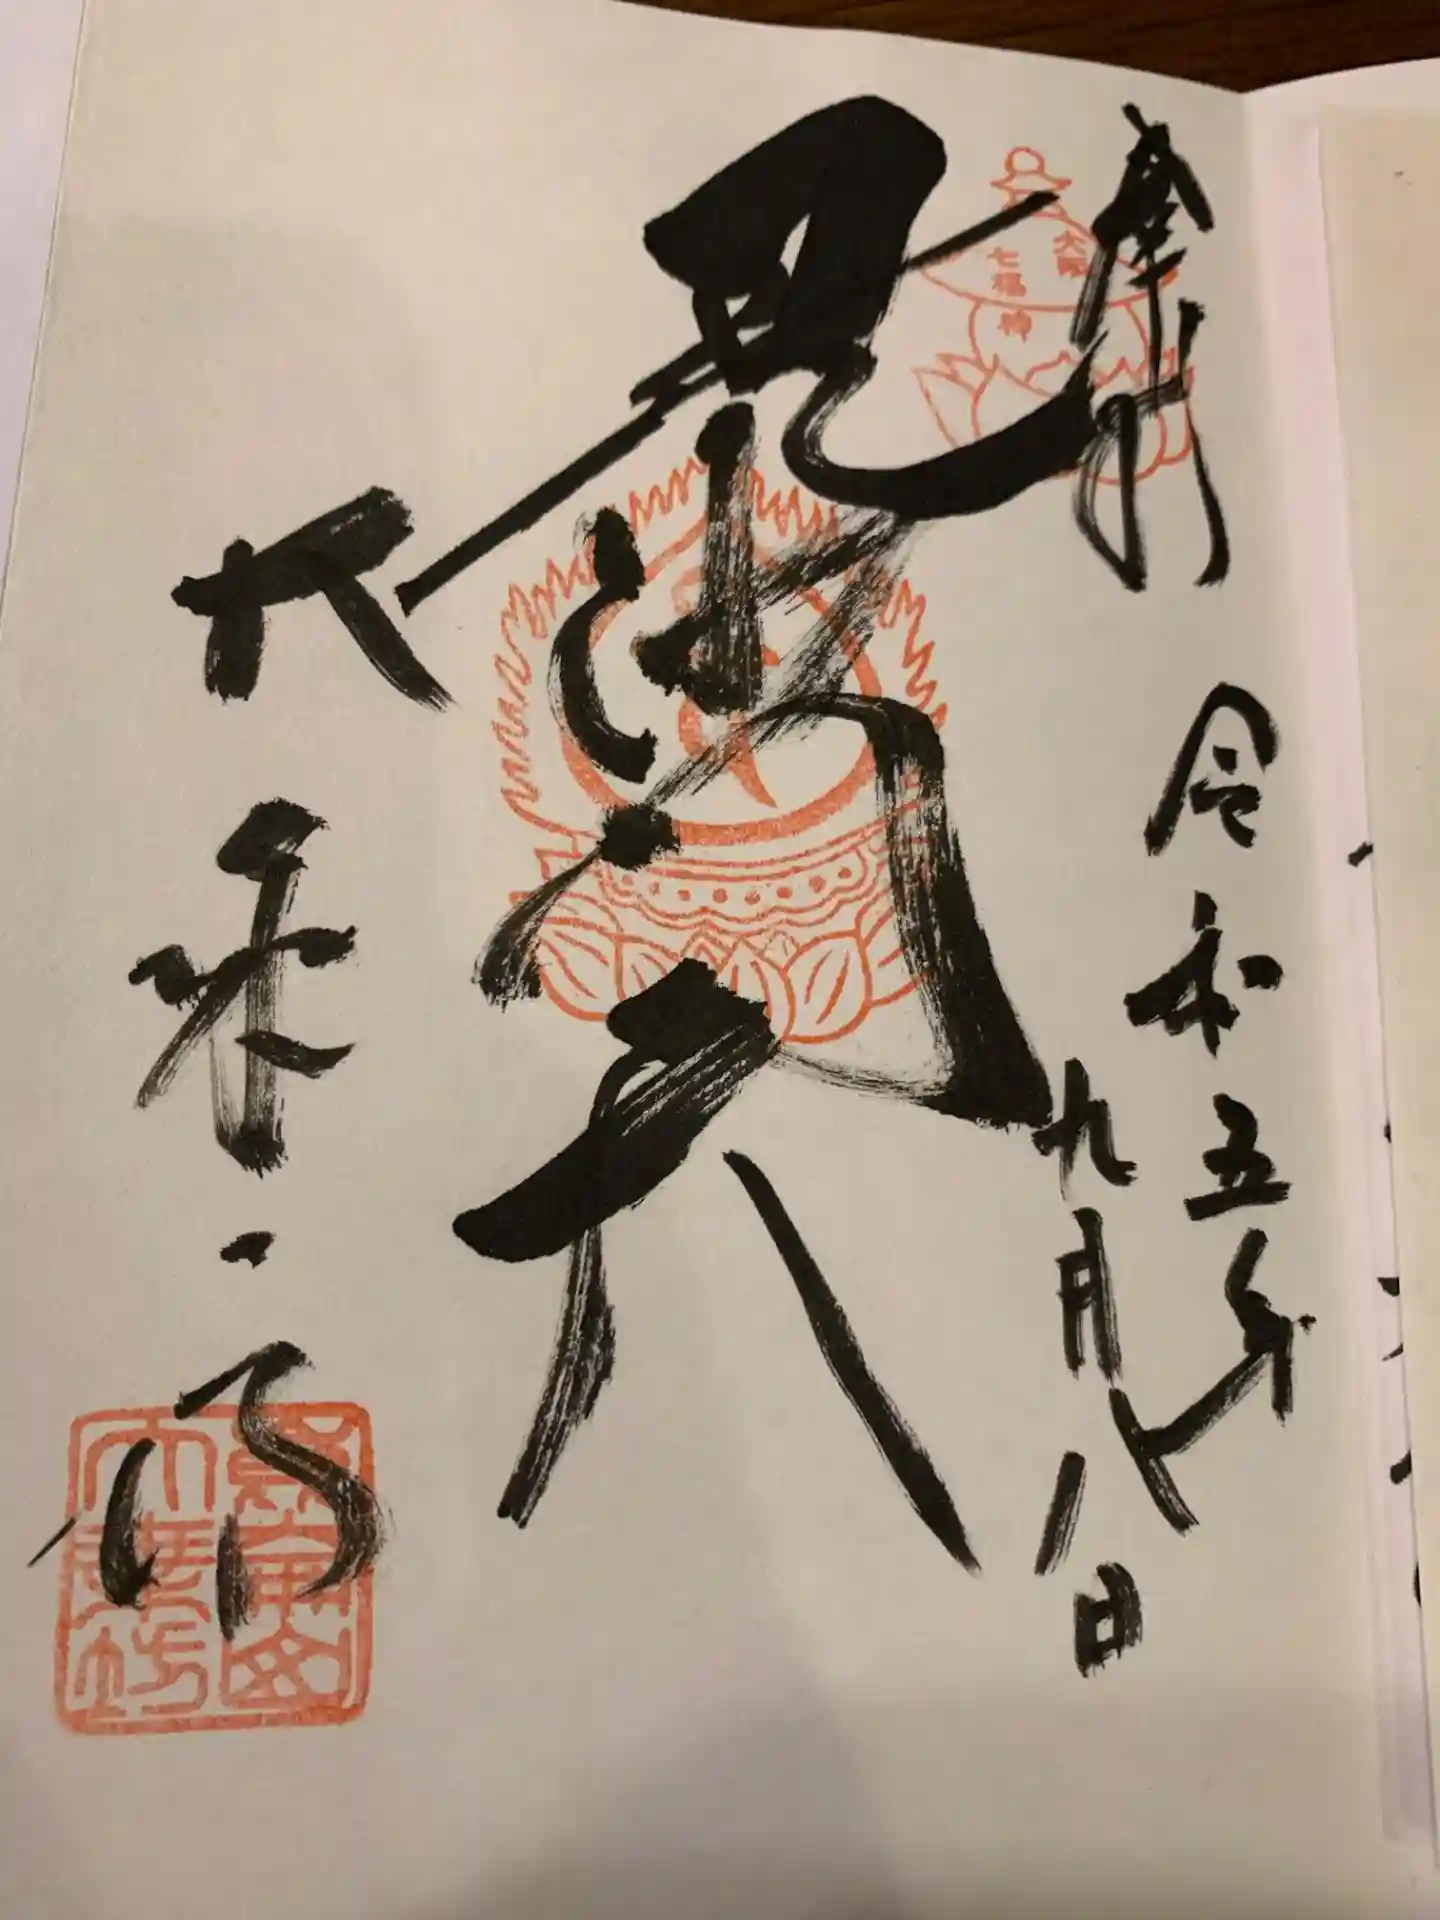 奉拝
大阪
七福神
令和五年
九月八日
毘沙門天
大乗坊